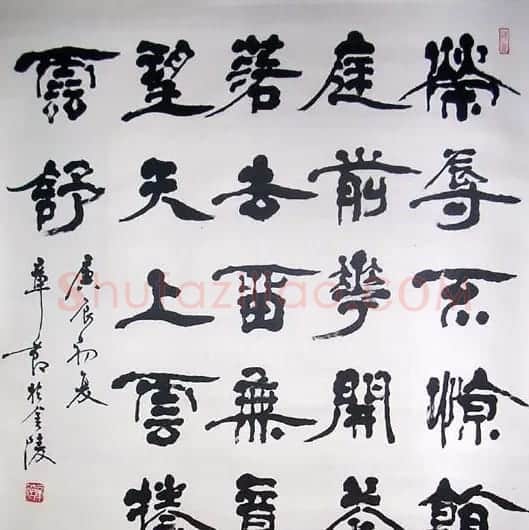 榮辱不惊
庭前華開
落去畱無意
望天上雲捲
雲舒
庚辰初夏
章於金陵
Shufaziliao.COM